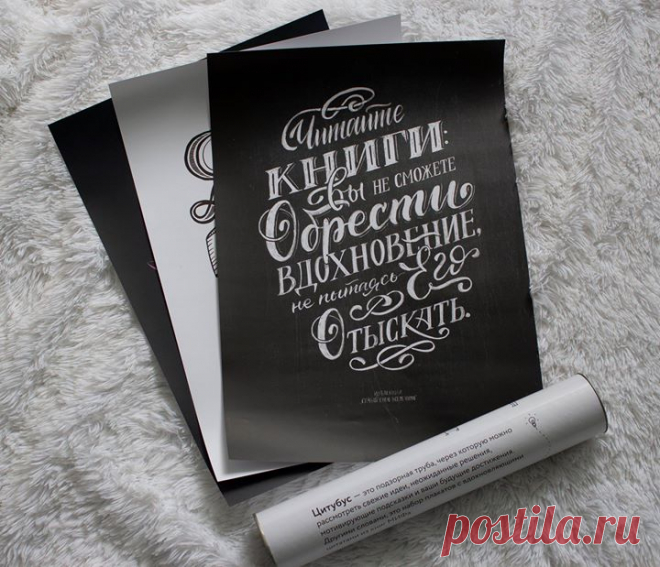 Читайте
КНИГИ:
Вы НЕ СМОЖЕТЕ
Обрести
ВДОХНОВЕНИЕ,
не пытаясь Его
ОТЫСКАТЬ.
Цитубус — это подзорная труба, через которую можно
рассмотреть свежие идеи, неожиданные решения,
мотивирующие подсказки и ваши будущие достижения.
Другими словами, это набор плакатов с вдохновляющими
postila.ru